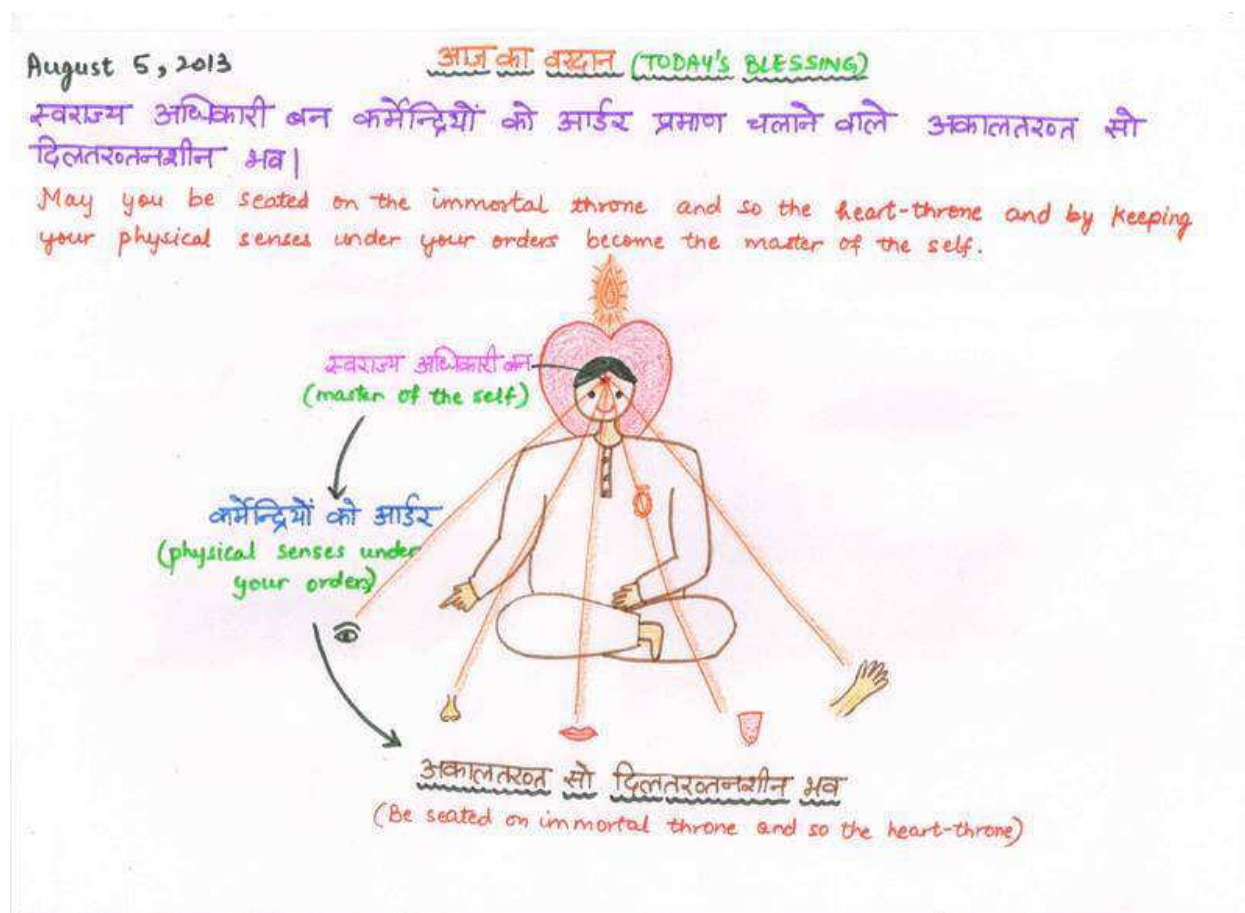 August 5, 2013
आज का वरदान (TODAY'S BLESSING)
स्वराज्य अधिकारी बन कर्मेन्द्रियों को आर्डर प्रमाण चलाने वाले अकालतख्त सो
दिलतख्तनशीन भव|
May you be seated on the immortal throne and so the heart-throne and by keeping
your physical senses under your orders become the master of the self.
स्वराज्य अधिकारी बन
(master of the self)
कर्मेन्द्रियों को आर्डर
(physical senses under
your orders)
अकालतख्त सो दिलतख्तनशीन भव
(Be seated on immortal throne and so the heart-throne)